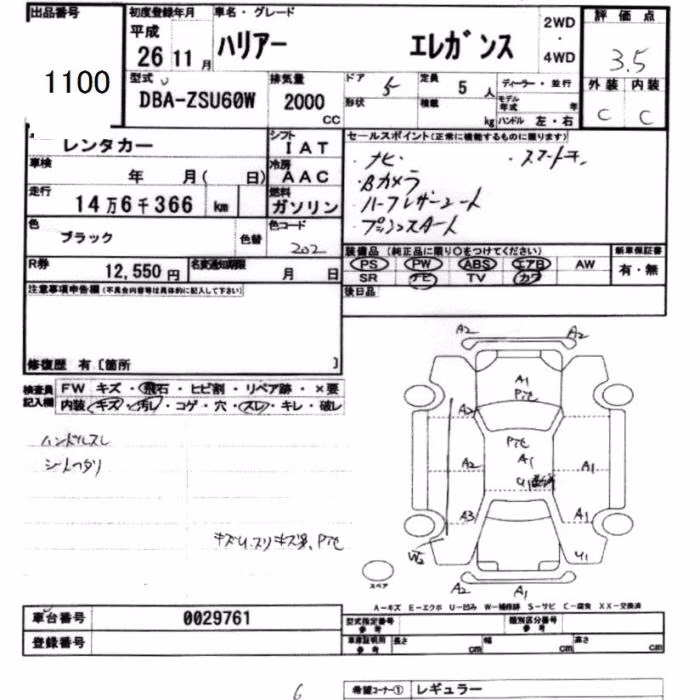 出品番号
1100
初度登録年月
平成
26 11月
車名・グレード
ハリアー エレガンス
2WD
・
4WD
評価点
3.5
外装 内装
C C
型式
DBA-ZSU60W
排気量
2000
CC
ドア 5
形状
定員 5人
積載 kg
ディーラー・並行
モデル年式 年
ハンドル 左・右
レンタカー
シフト
IAT
車検
年 月( 日)
冷房
AAC
走行
14万6千366 km
燃料
ガソリン
色
ブラック
色替
色コード
202
R券
12,550円
名変通知期限
月 日
セールスポイント(正常に機能するものに限ります)
・ナビ ・スマートキー
・Bカメラ
・ハーフレザーシート
・プッシュスタート
装備品(純正品に限り○をつけてください)
PS PW ABS エアB AW
SR ナビ TV カワ
新車保証書
有・無
後日品
注意事項申告欄(不具合内容等は具体的に記入して下さい)
修復歴 有〔箇所 〕
検査員記入欄
FW キズ・飛石・ヒビ割・リペア跡・×要
内装 キズ・汚レ・コゲ・穴・スレ・キレ・破レ
ハンドルスレ
シートヘタリ
キズU、スリキズ多、Pte
A2 A2
A1
Pte
A2
Pte
A2 A1 A1
U1
A3 A1
W2 U1
スペア
A2 A1
A-キズ E-エクボ U-凹み W-補修跡 S-サビ C-腐食 XX-交換済
車台番号
0029761
登録番号
型式指定番号
参考
類別区分番号
参考
車庫証明用
参考
長さ cm 幅 cm 高さ cm
6
希望コーナー① レギュラー